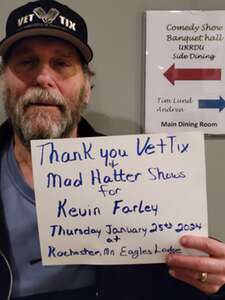 VET TIX
Comedy Show
Banquet hall
URRDU
Side Dining
Tim Lund
Andrea
Main Dining Room
Thank you VetTix
+
Mad Hatter Shows
for
Kevin Farley
Thursday January 25th 2024
at
Rochester, Mn Eagles Lodge